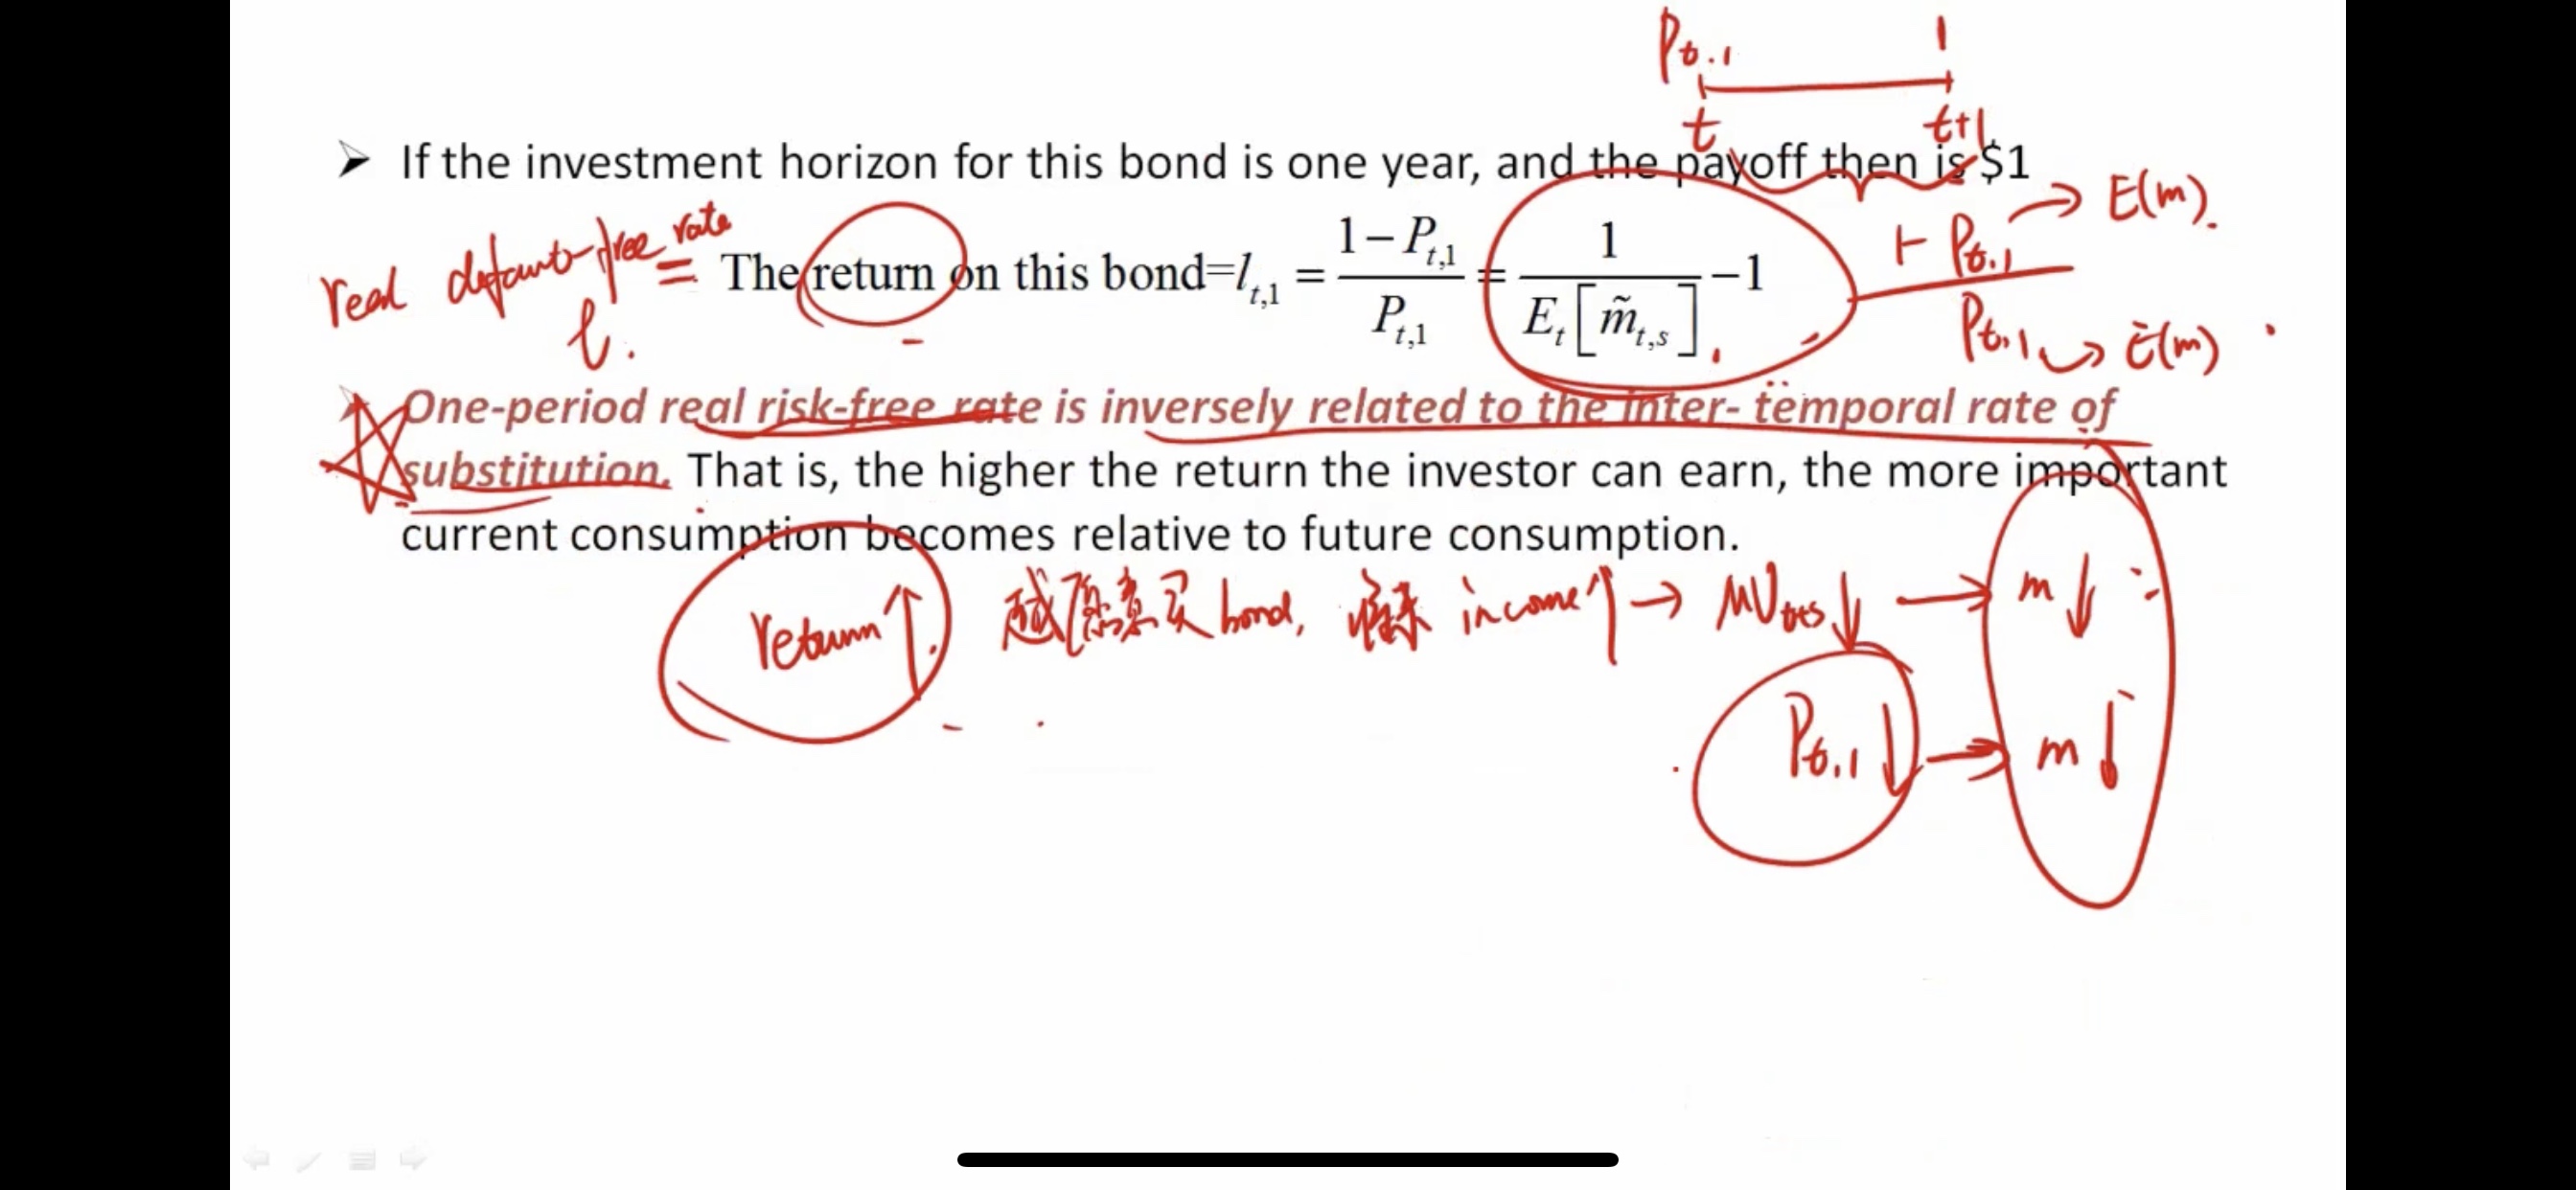 P t.1 1
t t+1
➢ If the investment horizon for this bond is one year, and the payoff then is $1
real default-free rate = The return on this bond=l_{t,1} = \frac{1-P_{t,1}}{P_{t,1}} = \frac{1}{E_t[\tilde{m}_{t,s}]}-1
l.
1-Pt.1 → E(m).
Pt.1 → E(m)
➢ One-period real risk-free rate is inversely related to the inter- temporal rate of
substitution. That is, the higher the return the investor can earn, the more important
current consumption becomes relative to future consumption.
return↑. 越愿意买 bond, 将来 income↑ → MU t+s ↓ → m↓
Pt.1↓ → m↓